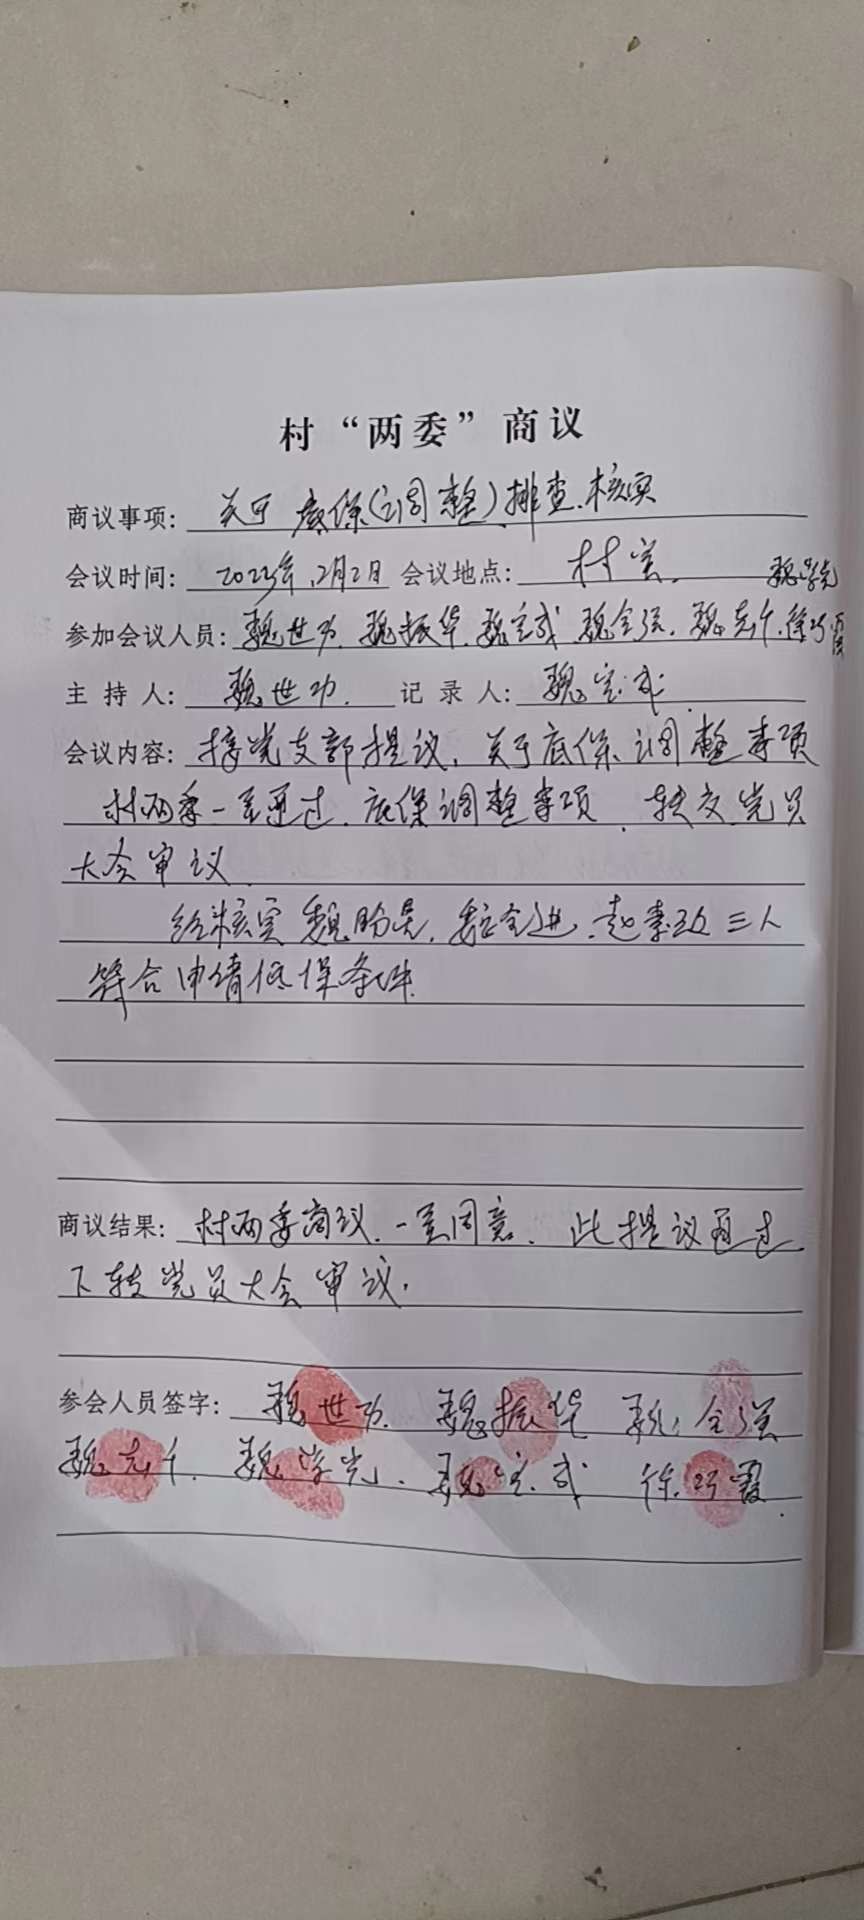 村“两委”商议
商议事项: 关于底保(调整)排查.核实
会议时间: 2023年12月2日 会议地点: 村室.
魏学党
参加会议人员: 魏世功.魏振华.魏宝成.魏全强.魏志千.徐巧霞
主持人: 魏世功. 记录人: 魏宝成.
会议内容: 接党支部提议,关于底保、调整事项
村两委一至通过.底保调整事项.转交党员
大会审议.
经核实魏盼,魏全进,赵三人
符合申请低保条件.
商议结果: 村两委商议.一至同意.此提议通过
下转党员大会审议.
参会人员签字: 魏世功. 魏振华 魏全强
魏志千. 魏学党. 魏宝成 徐巧霞.